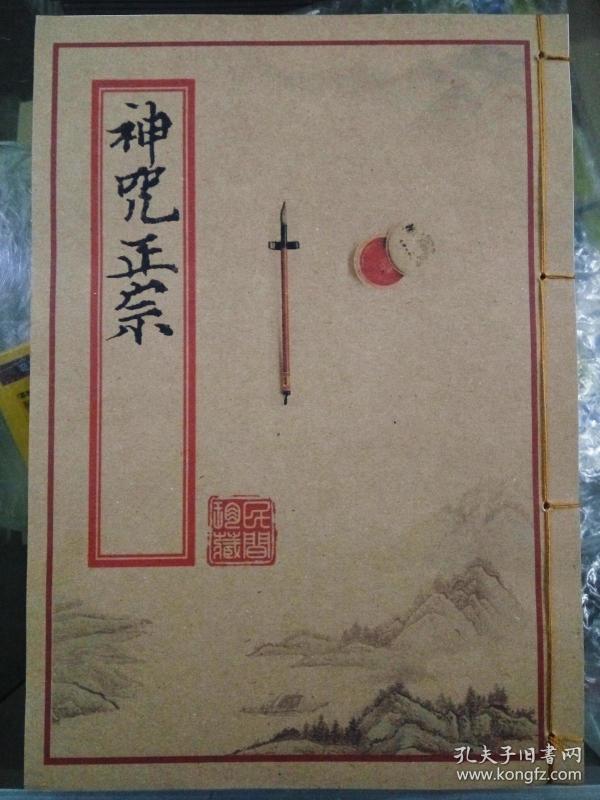 神咒正宗
民間
珍藏
孔夫子旧书网
www.kongfz.com